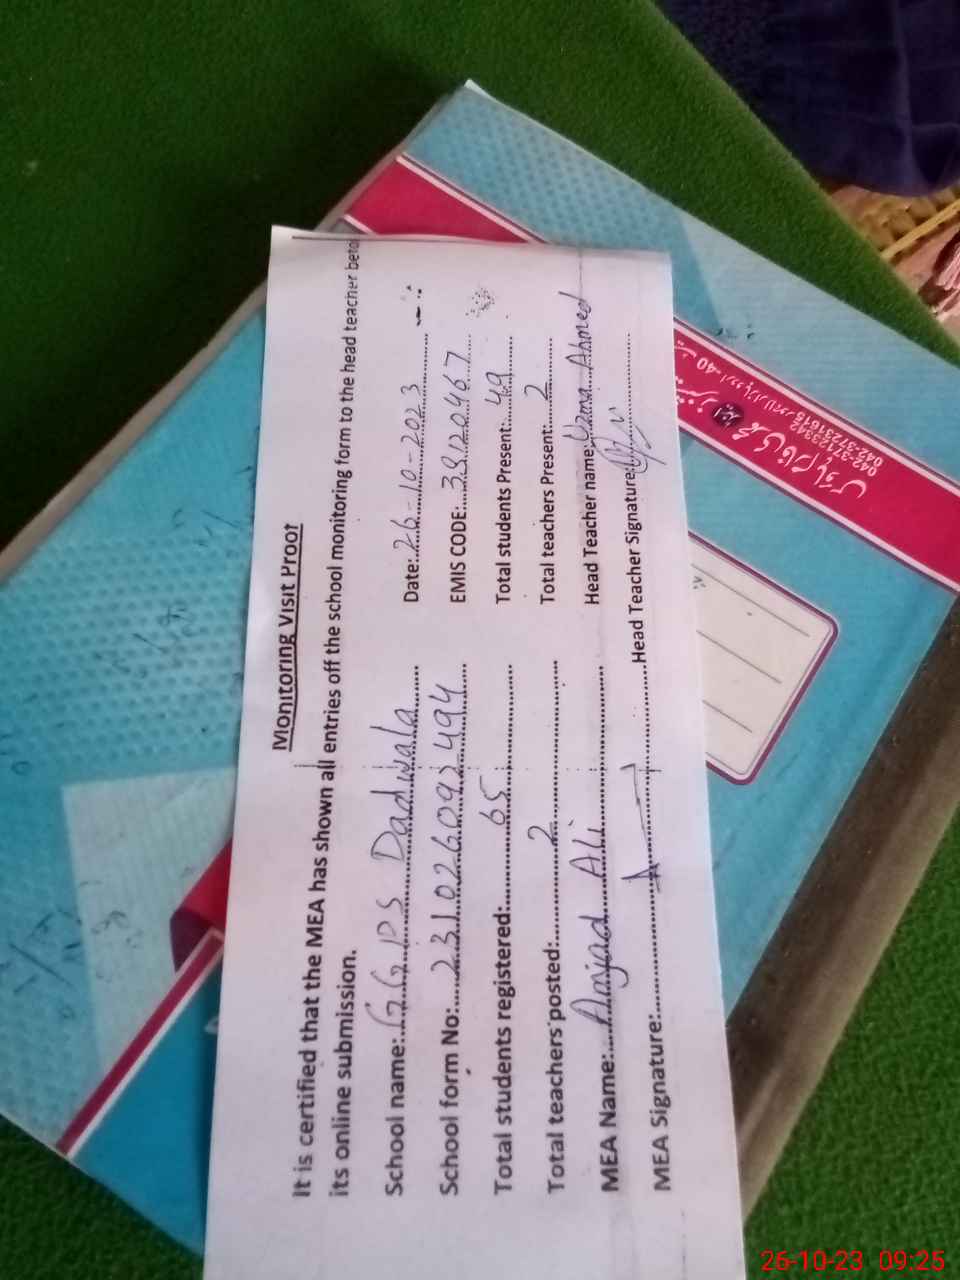 Monitoring Visit Proof
It is certified that the MEA has shown all entries off the school monitoring form to the head teacher befo
its online submission.
School name:....GGPS Dadwala.... Date:....26-10-2023....
School form No:.... EMIS CODE:....
Total students registered:....65.... Total students Present:....49....
Total teachers posted:....2.... Total teachers Present:....2....
MEA Name:....Amjad Ali.... Head Teacher name:Uzma Ahmed
MEA Signature:.... Head Teacher Signature:....
042-37123342
042-37231615
26-10-23 09:25